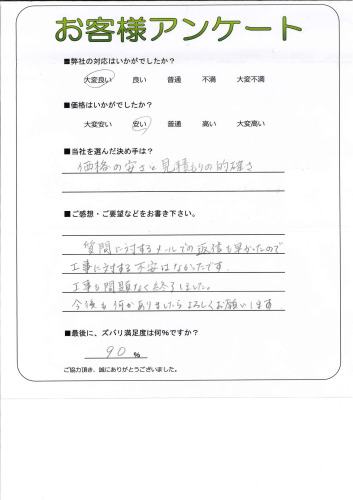 お客様アンケート
■弊社の対応はいかがでしたか?
大変良い 良い 普通 不満 大変不満
■価格はいかがでしたか?
大変安い 安い 普通 高い 大変高い
■当社を選んだ決め手は?
価格の安さと見積もりの的確さ
■ご感想・ご要望などをお書き下さい。
質問に対するメールでの返信も早かったので
工事に対する不安はなかったです。
工事も問題なく終了しました。
今後も何かありましたらよろしくお願いします
■最後に、ズバリ満足度は何%ですか?
90 %
ご協力頂き、誠にありがとうございました。